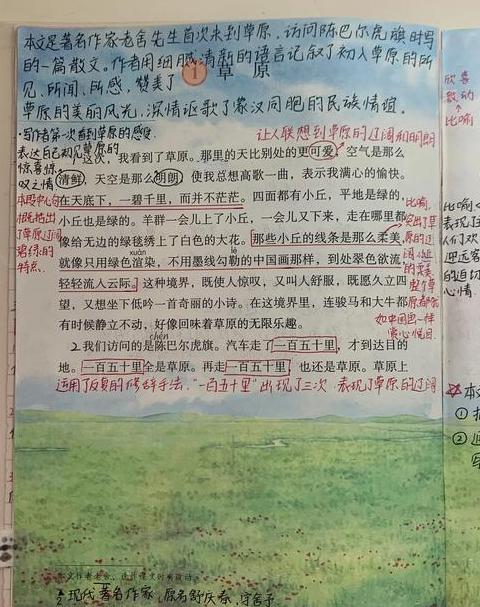 本文是著名作家老舍先生首次来到草原，访问陈巴尔虎旗时写
的一篇散文。作者用细腻清新的语言记叙了初入草原的所
见、所闻、所感，赞美了
草原的美丽风光，深情讴歌了蒙汉同胞的民族情谊。
1 草原
·写作者第一次看到草原的感受
表达自己初见草原的
惊喜惊
叹之情
让人联想到草原的辽阔和明朗
这次，我看到了草原。那里的天比别处的更可爱，空气是那么
清鲜，天空是那么明朗，使我总想高歌一曲，表示我满心的愉快。
在天底下，一碧千里，而并不茫茫。四面都有小丘，平地是绿的，
小丘也是绿的。羊群一会儿上了小丘，一会儿又下来，走在哪里都
像给无边的绿毯绣上了白色的大花。那些小丘的线条是那么柔美，
xuàn lè
就像只用绿色渲染，不用墨线勾勒的中国画那样，到处翠色欲流，
轻轻流入云际。这种境界，既使人惊叹，又叫人舒服，既愿久立四
望，又想坐下低吟一首奇丽的小诗。在这境界里，连骏马和大牛都
有时候静立不动，好像回味着草原的无限乐趣。
本段中心句
概括地出
了草原辽阔
碧绿的
特点。
比喻，
突出了草
原的辽
阔，小丘
的柔美
原都
如中国画一样
赏心悦目
chén
2 我们访问的是陈巴尔虎旗。汽车走了一百五十里，才到达目的
地。一百五十里全是草原。再走一百五十里，也还是草原。草原上
运用了反复的修辞手法，"一百五十里"出现了三次，表现了草原的辽阔
本文作者老舍，选作课文时有改动。
现代著名作家，原名舒庆春，字舍予
欣喜
激动
比喻
比喻
表现了
人们欢
迎远客
的迫切
心情
本文
①
②